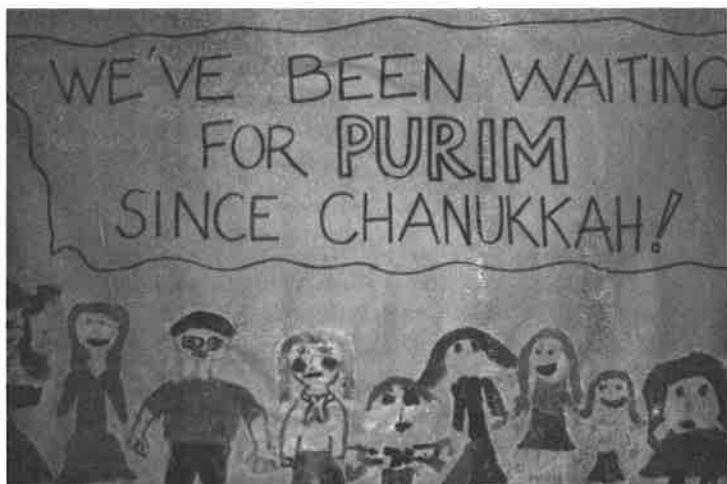 WE'VE BEEN WAITING
FOR PURIM
SINCE CHANUKKAH!